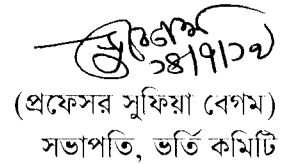 ১৪/৭/১৭
(প্রফেসর সুফিয়া বেগম)
সভাপতি, ভর্তি কমিটি